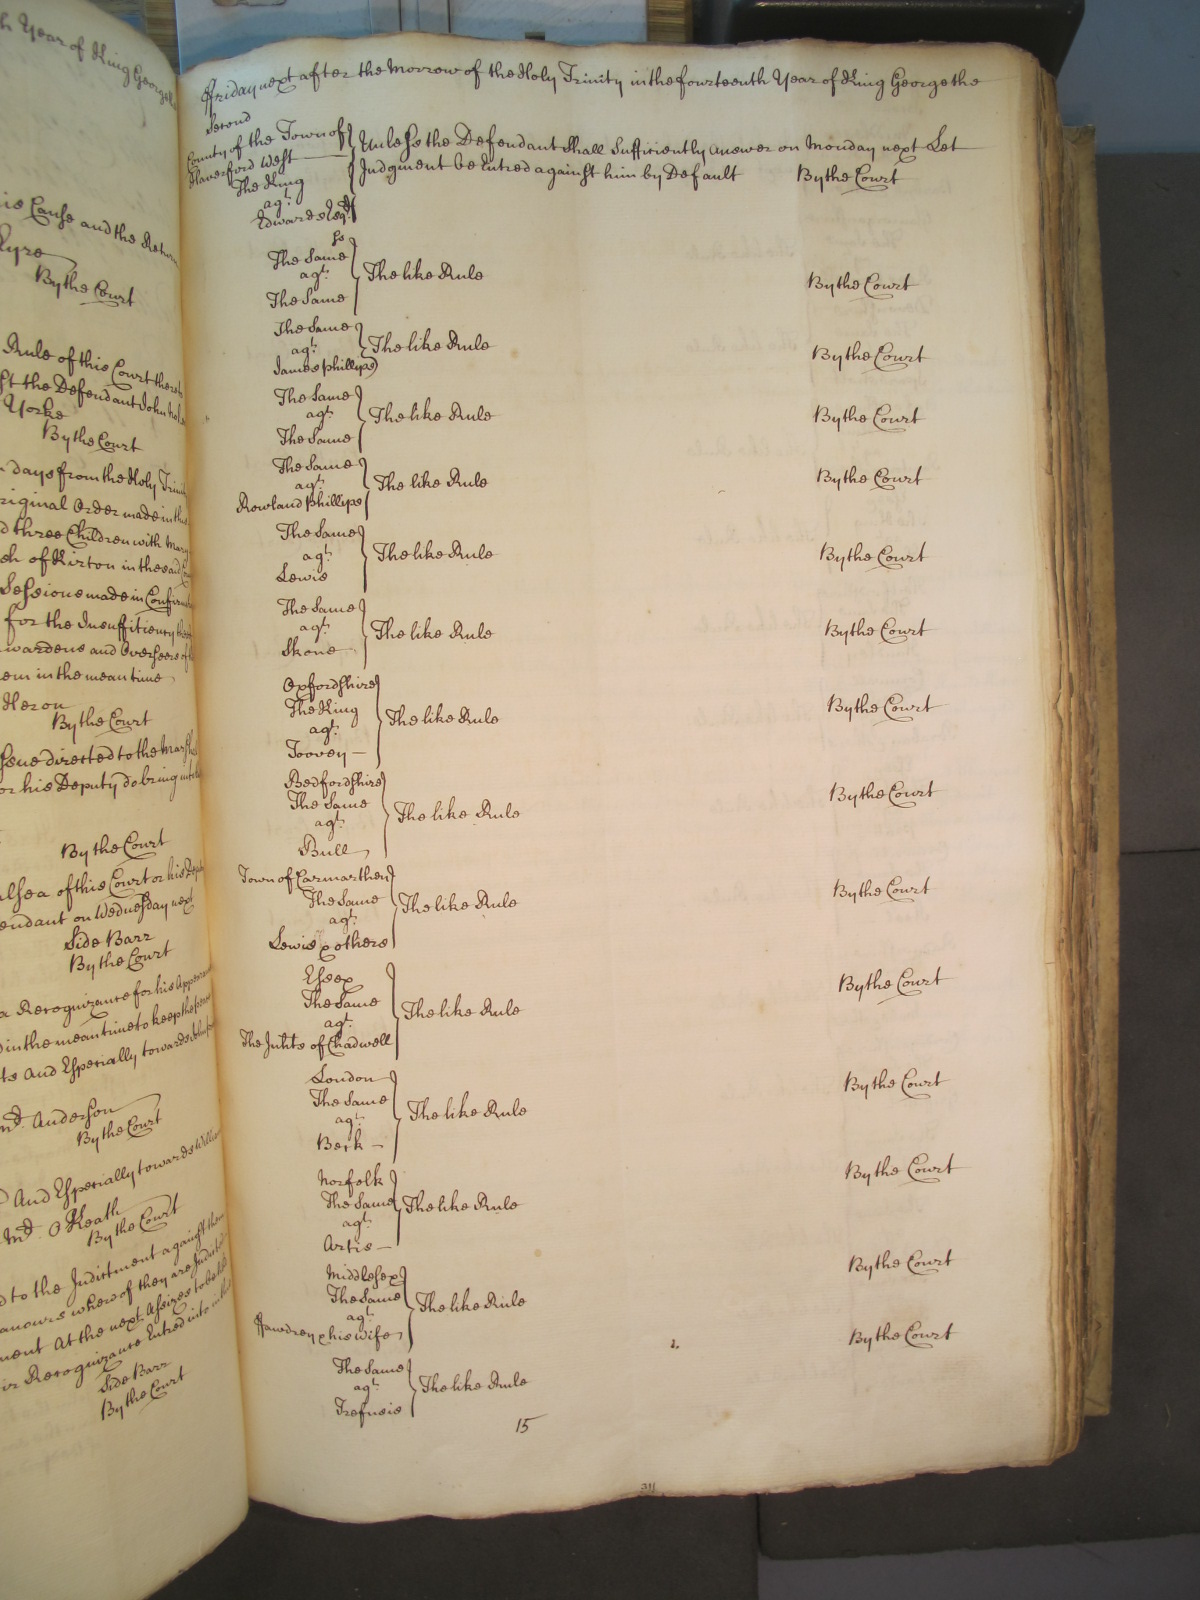 th Year of King George
is Cause and the Return
Eyre
By the Court
Rule of this Court
the Defendant John
Yorke
By the Court
days from the Holy
riginal Order made in
three Children with Mary
of Kirton in the
Sessions made in
for the Insufficiency
wardens and Overseers
em in the mean time
Heron
By the Court
directed to the
or his Deputy to bring
By the Court
alsea of this Court or his
endant on Wednesday next
Side Barr
By the Court
a Recognizance for his
in the mean time to keep the
ts And Especially towards
Anderson
By the Court
And Especially towards
Md. O Keath
By the Court
to the Indictment against
whereof they are
At the next Assizes to be
Recognizance Entred into
Side Barr
By the Court
Friday next after the Morrow of the Holy Trinity in the fourteenth Year of King George the
Second
County of the Town of
Haverford West
The King
agt.
Edwards Esqr.
Unless the Defendant Shall Sufficiently answer on Monday next Let
Judgment be Entred against him by Default By the Court
The Same
agt.
The Same
The like Rule By the Court
The Same
agt.
James Phillips
The like Rule By the Court
The Same
agt.
The Same
The like Rule By the Court
The Same
agt.
Rowland Phillips
The like Rule By the Court
The Same
agt.
Lewis
The like Rule By the Court
The Same
agt.
Skone
The like Rule By the Court
Oxfordshire
The King
agt.
Toovey
The like Rule By the Court
Bedfordshire
The Same
agt.
Bull
The like Rule By the Court
Town of Carmarthen
The Same
agt.
Lewis & others
The like Rule By the Court
Essex
The Same
agt.
The Inhts of Chadwell
The like Rule By the Court
London
The Same
agt.
Berk
The like Rule By the Court
Norfolk
The Same
agt.
Artis
The like Rule By the Court
Middlesex
The Same
agt.
Fawdrey & his Wife
The like Rule By the Court
The Same
agt.
Trefusis
The like Rule By the Court
15